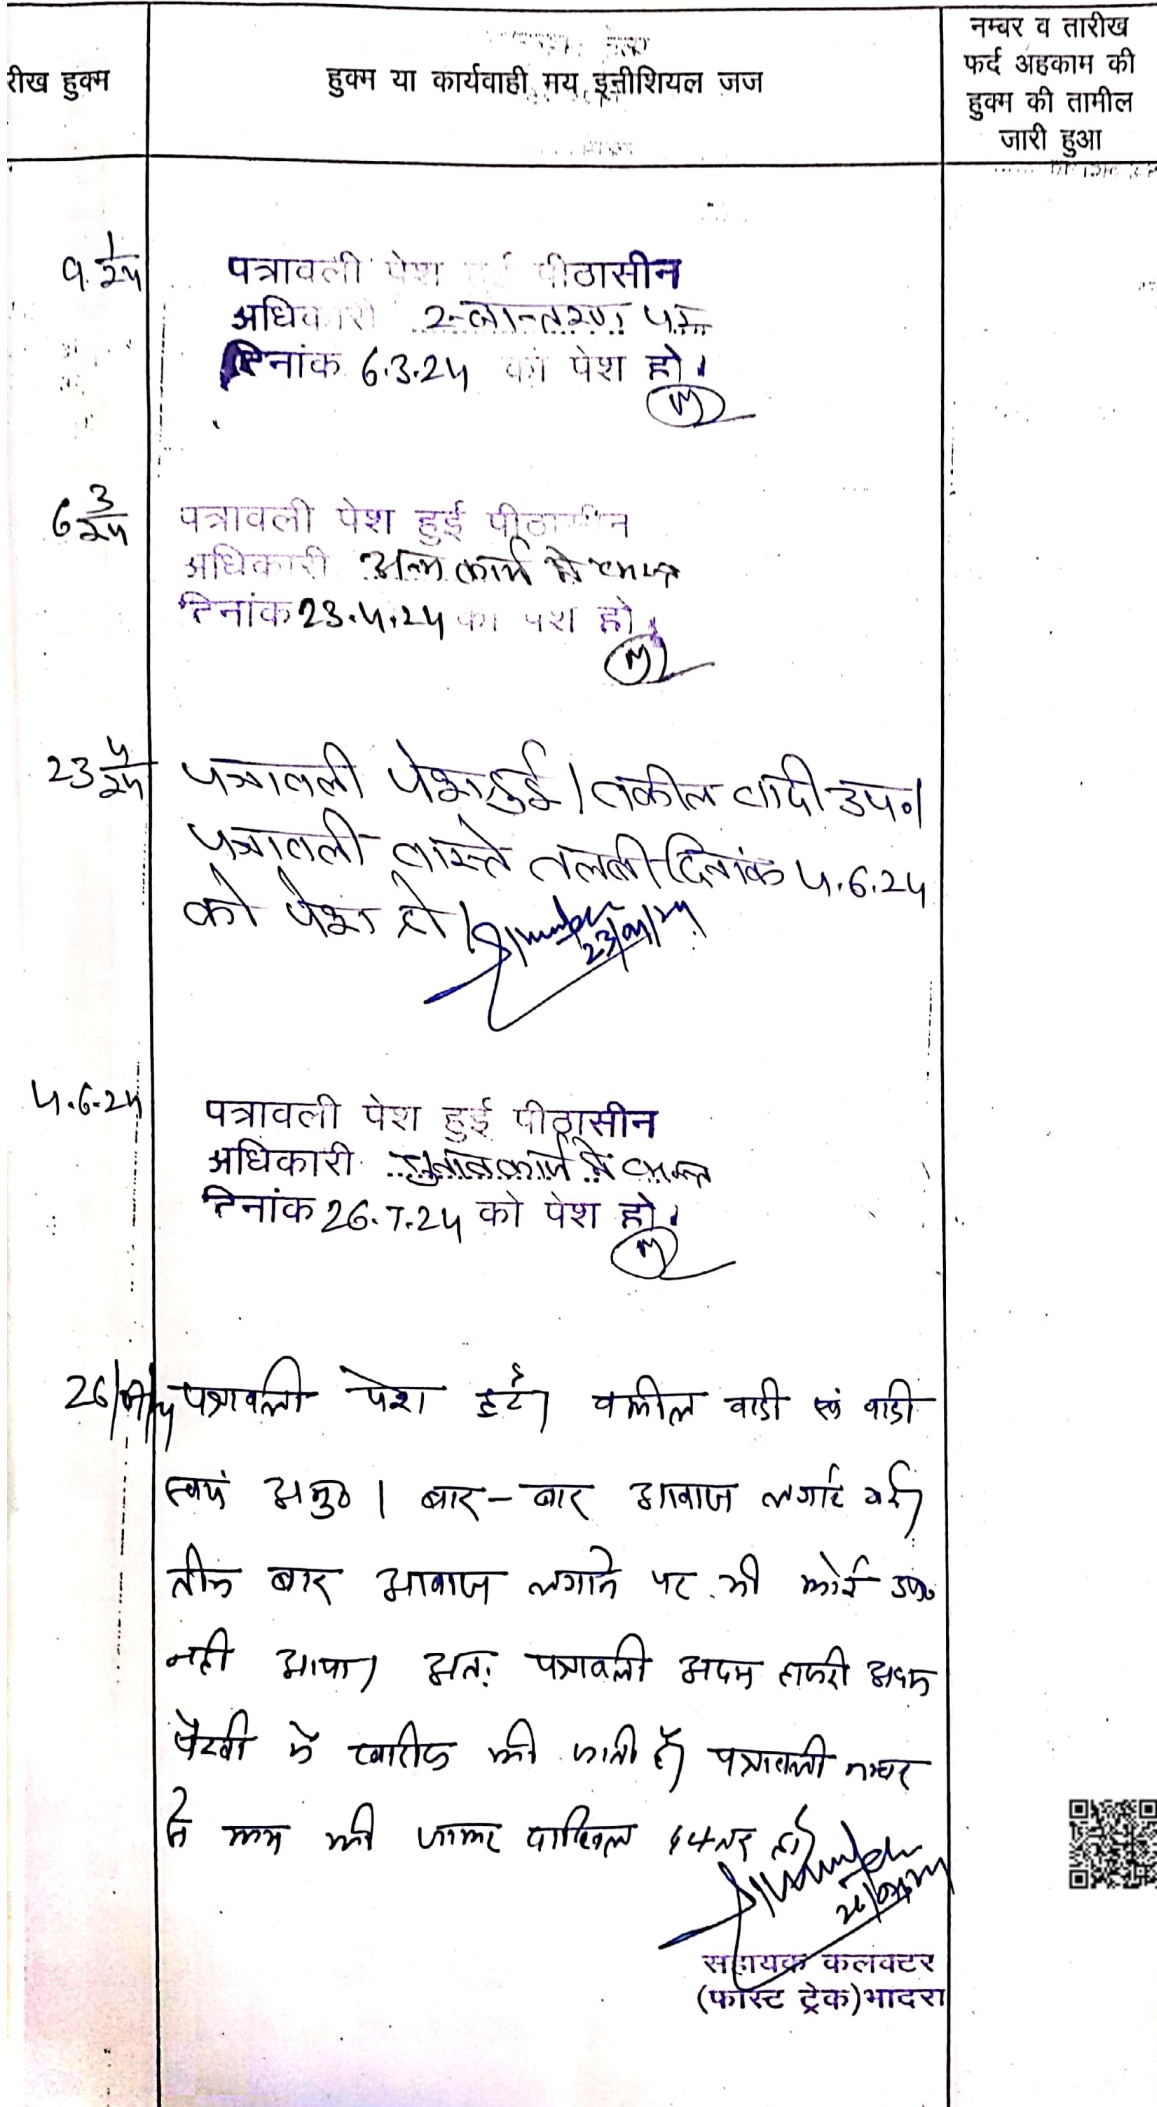 रीख हुक्म
हुक्म या कार्यवाही मय इनीशियल जज
नम्बर व तारीख
फर्द अहकाम की
हुक्म की तामील
जारी हुआ
9.1/24
पत्रावली पेश हुई पीठासीन
अधिकारी स्थानान्तरण पर
दिनांक 6.3.24 को पेश हो।
6 3/24
पत्रावली पेश हुई पीठासीन
अधिकारी अन्य कार्य में व्यस्त
दिनांक 23.4.24 को पेश हो।
23 4/24
पत्रावली पेश हुई। वकील वादी उप०।
पत्रावली वास्ते तलबी दिनांक 4.6.24
को पेश हो।
23/04/24
4.6.24
पत्रावली पेश हुई पीठासीन
अधिकारी चुनाव कार्य में व्यस्त
दिनांक 26.7.24 को पेश हो।
26/07/24
पत्रावली पेश हुई। वकील वादी एवं वादी
स्वयं अनु०। बार-बार आवाज लगाई गई।
तीन बार आवाज लगाने पर भी कोई उप०
नही आया। अतः पत्रावली अदम हाजरी अदम
पैरवी में खारीज की जाती है। पत्रावली नम्बर
से कम की जाकर दाखिल दफ्तर हो।
26/07/24
सहायक कलक्टर
(फास्ट ट्रेक)भादरा